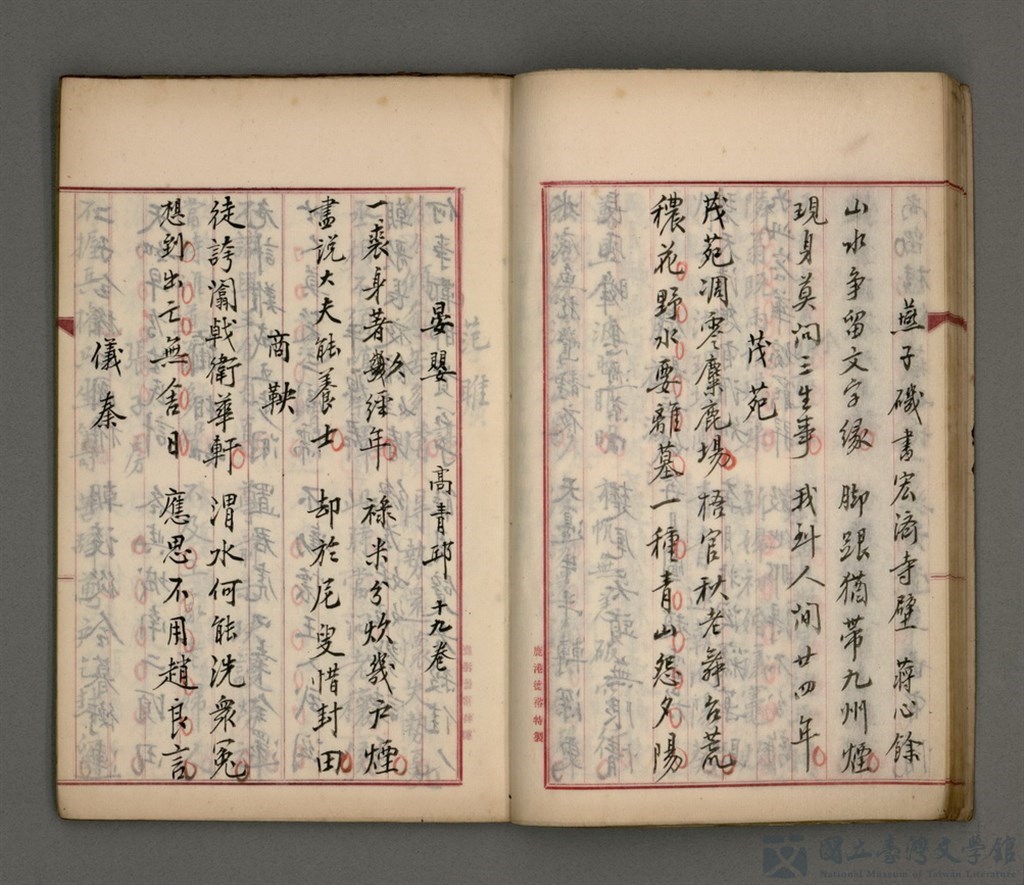 燕子磯書宏濟寺壁 蔣心餘
山水爭留文字緣 脚跟猶帶九州煙
現身莫問三生事 我到人間廿四年
茂苑
茂苑凋零麋鹿場 梧宮秋老舞台荒
穠花野水要離墓 一種青山怨夕陽
鹿港 特製
晏嬰 高青邱 十九卷
一裘身著幾經年 祿米分炊幾戶煙
久
盡說大夫能養士 却於尼叟惜封田
商鞅
徒誇闟戟衛華軒 渭水何能洗衆冤
想到出亡無舍日 應思不用趙良言
儀秦
國立臺灣文學館
National Museum of Taiwan Literature